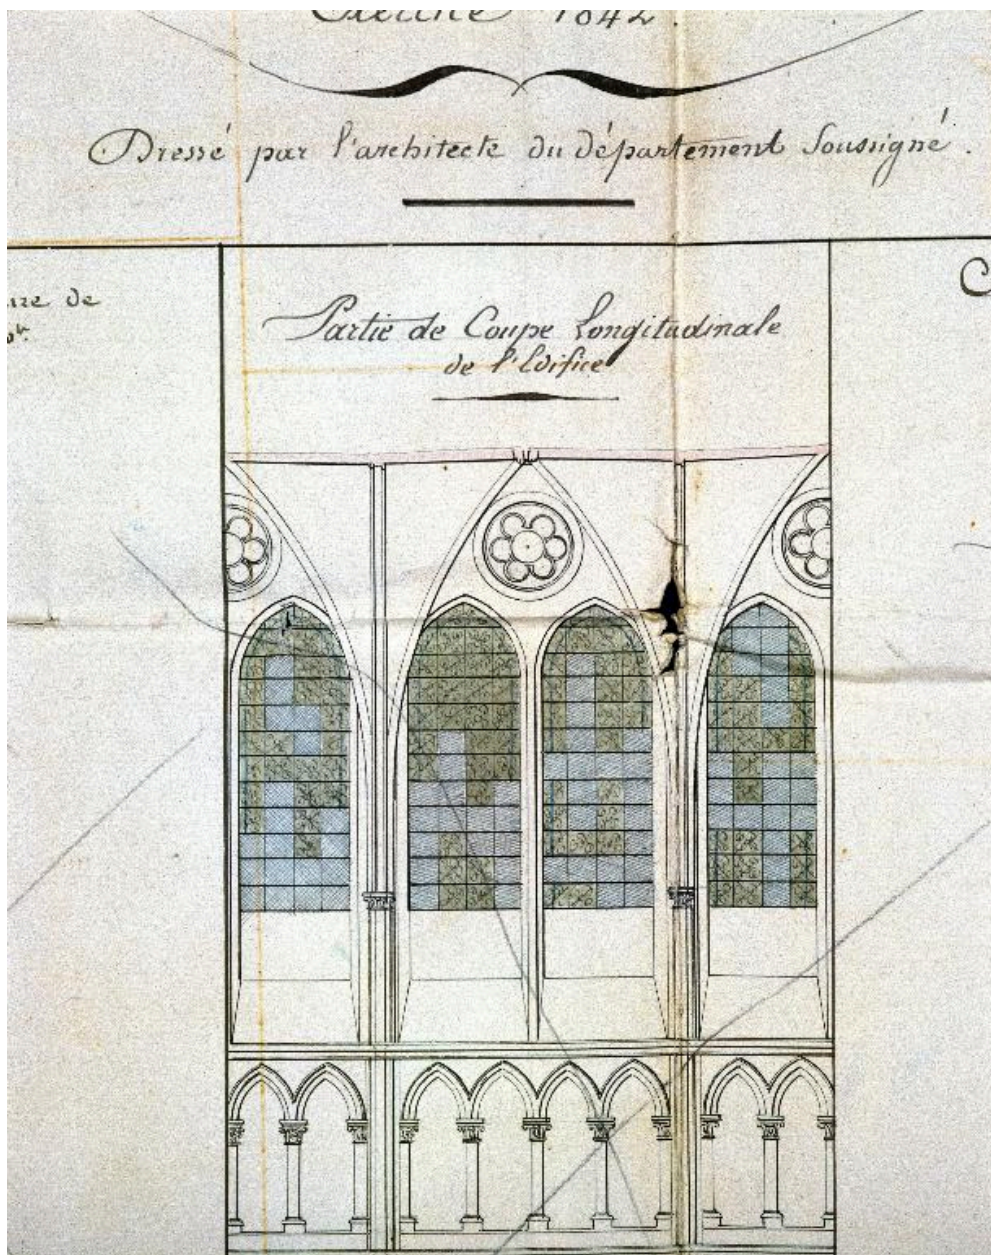 1842.
Dressé par l'architecte du département Soussigné.
de
Partie de Coupe Longitudinale
de l'Edifice